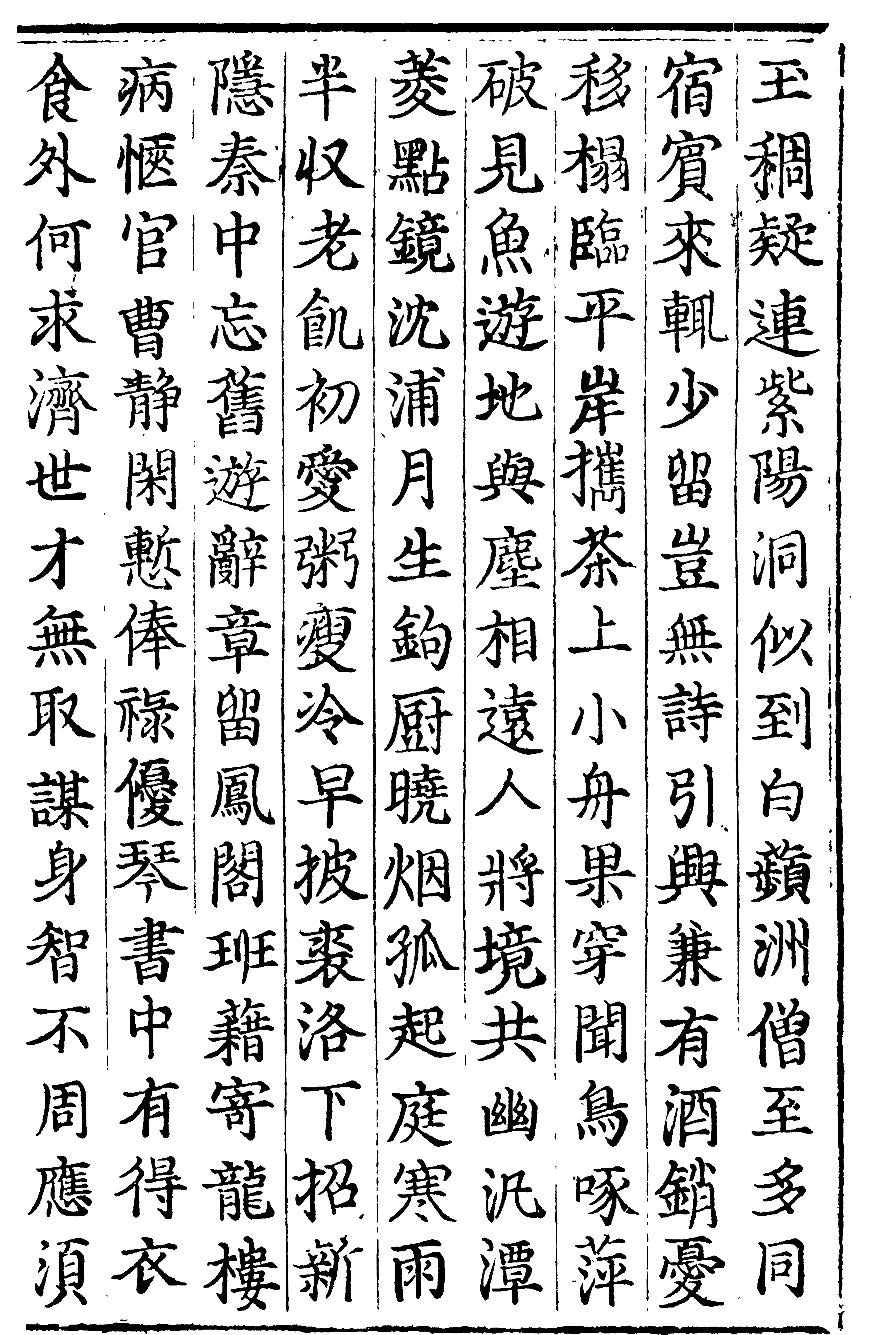 玉稠疑連紫陽洞似到白蘋洲僧至多同
宿賓來輒少留豈無詩引興兼有酒銷憂
移榻臨平岸攜茶上小舟果穿聞鳥啄萍
破見魚遊地與塵相遠人將境共幽汎潭
菱點鏡沈浦月生鉤厨曉烟孤起庭寒雨
半収老飢初愛粥瘦冷早披裘洛下招新
隱秦中忘舊遊辭章留鳳閣班藉寄龍樓
病愜官曹静閑慙俸祿優琴書中有得衣
食外何求濟世才無取謀身智不周應須